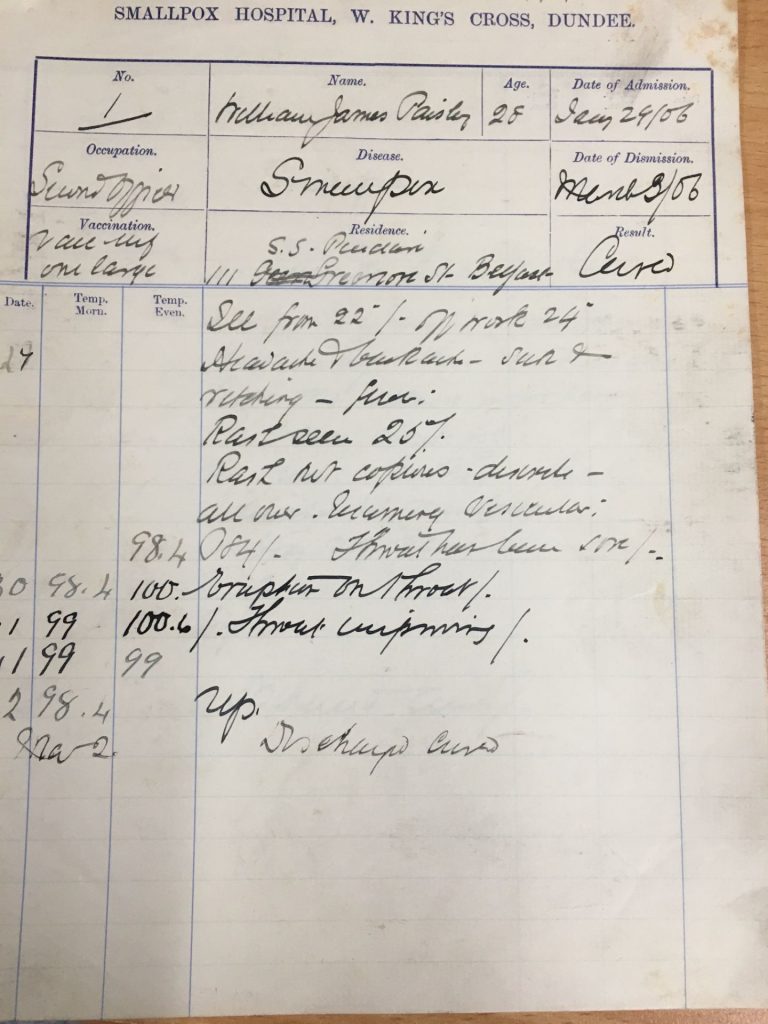 SMALLPOX HOSPITAL, W. KING'S CROSS, DUNDEE.
No. Name. Age. Date of Admission.
1 William James Paisley 28 Jany 29/06
Occupation. Disease. Date of Dismission.
Second Officer Smallpox March 3/06
Vaccination. Residence. Result.
Vacc inf S.S.
one large 111 Greenore St. Belfast Cured
Date. Temp. Morn. Temp. Even.
Ill from 22 /- off work 24
Headache & backache - sick &
retching - fever:
Rash seen 25/.
Rash not copious - discrete -
all over. Becoming Vesicular:
98.4 Throat has been sore /-.
30 98.4 100. Eruption on throat /.
1 99 100.6 /. Throat improving /.
1 99 99
2 98.4 up.
Mar 2. Discharged cured